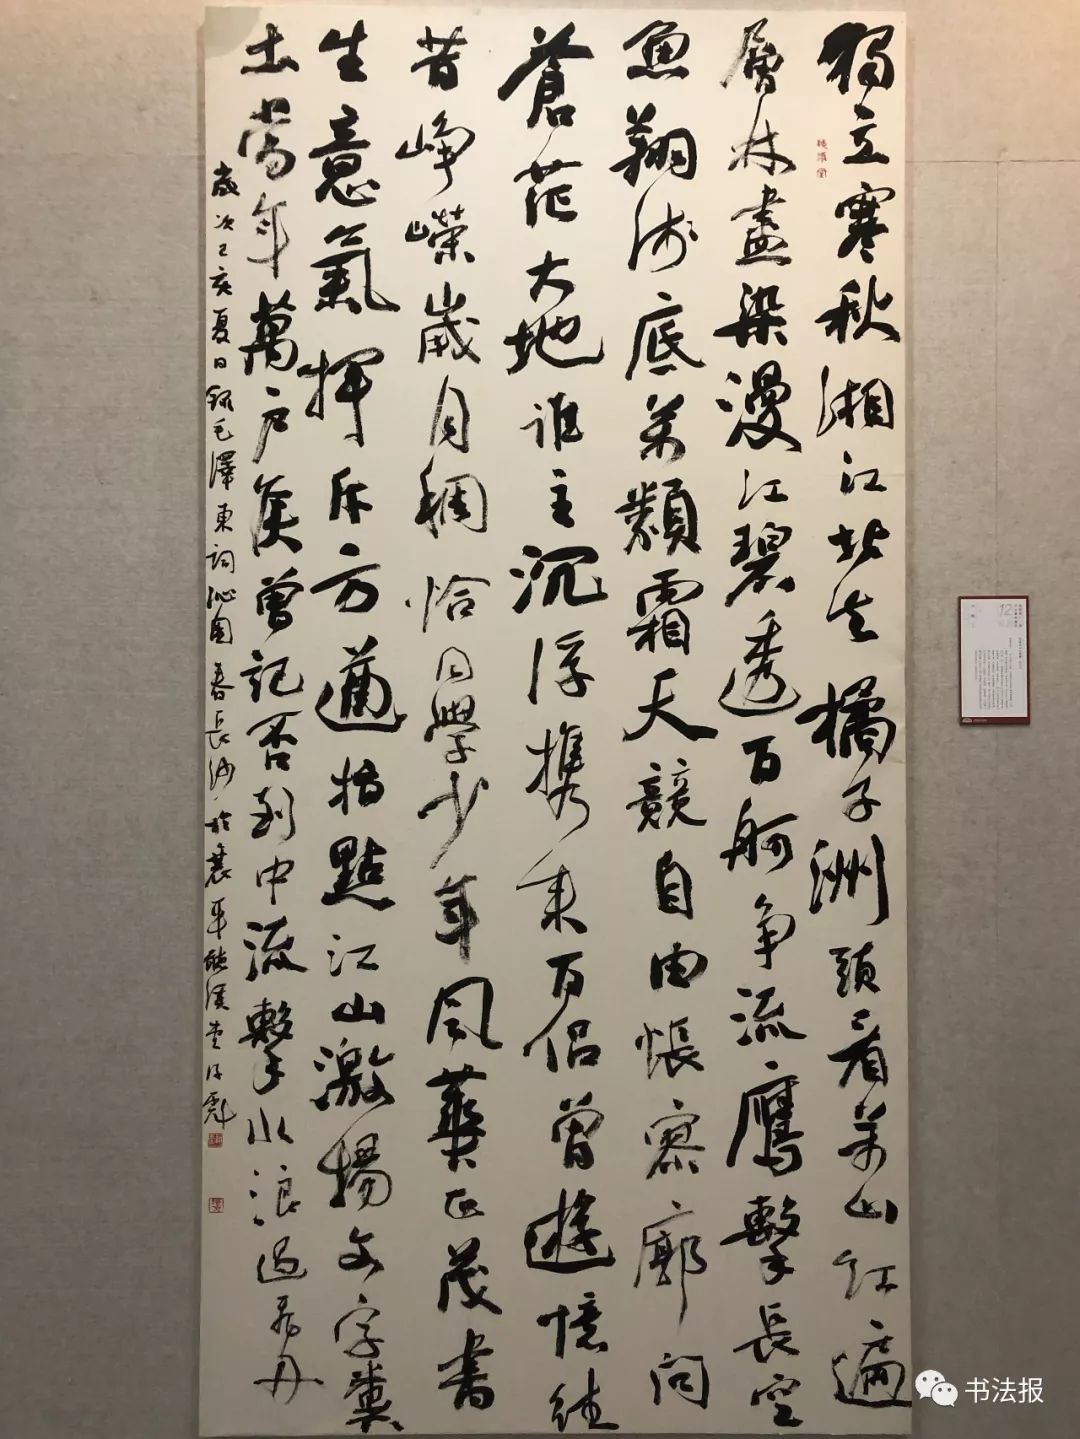 獨立寒秋湘江北去橘子洲頭看萬山紅遍
層林盡染漫江碧透百舸争流鷹擊長空
魚翔淺底萬類霜天競自由悵寥廓問
蒼茫大地誰主沉浮携来百侣曾遊憶往
昔峥嶸歲月稠恰同學少年風華正茂書
生意氣揮斥方遒指點江山激揚文字糞
土當年萬户侯曾記否到中流擊水浪遏飛舟
歲次己亥夏日録毛澤東詞沁園春長沙於襄平
书法报